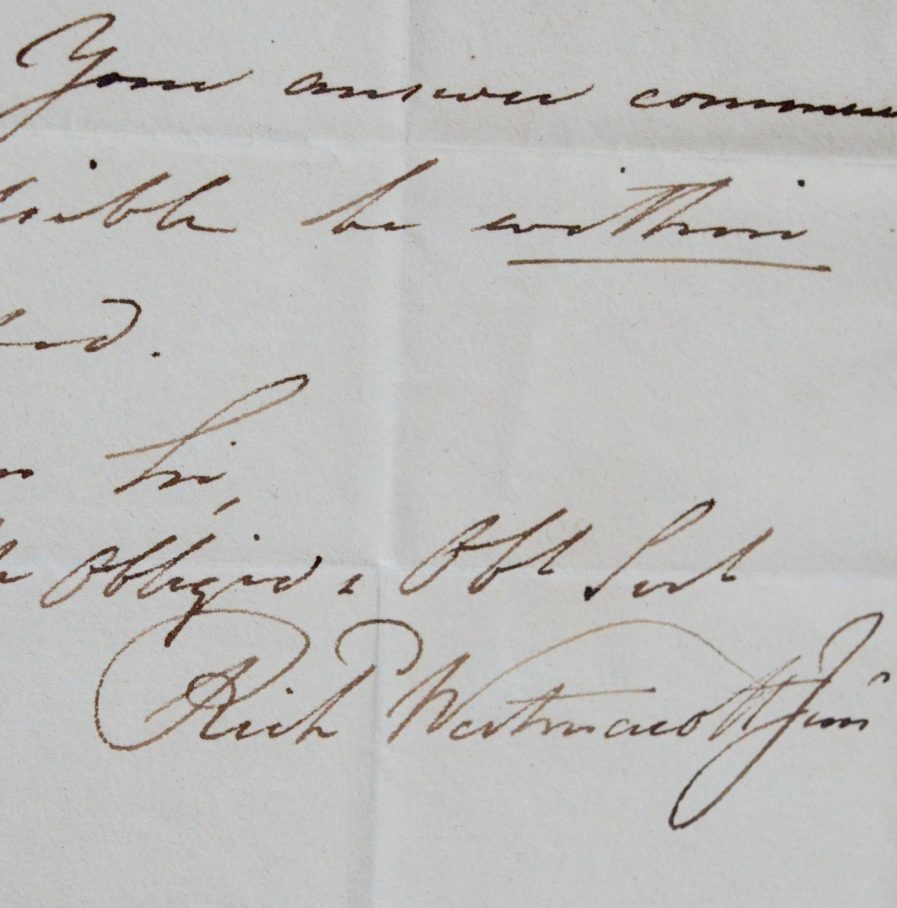 Your answer commun
sible be within
ted.
Sir,
Obliged & Obt Sert
Richd Westmacott Junr